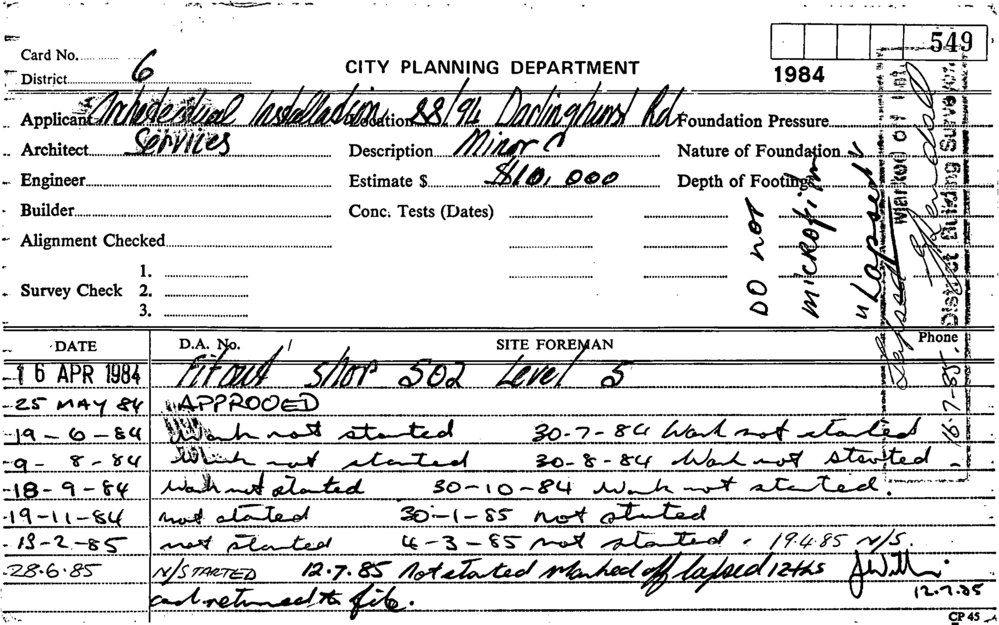 549
Card No.
District 6
CITY PLANNING DEPARTMENT
1984
Applicant Installation Location 88/94 Darlinghurst Rd Foundation Pressure
Architect Services Description Minor C Nature of Foundation
Engineer Estimate $ $10,000 Depth of Footings
Builder Conc. Tests (Dates)
Alignment Checked
1.
Survey Check 2.
3.
DO NOT
MICROFILM
"Lapsed"
Marked Off
District Building Surveyor.
16-7-85.
DATE D.A. No. SITE FOREMAN Phone
16 APR 1984 Fitout Shop 502 Level 5
25 MAY 84 APPROOED
19-6-84 Work not started 30-7-84 Work not started
9-8-84 Work not started 30-8-84 Work not started
18-9-84 Work not started 30-10-84 Work not started.
19-11-84 not started 30-1-85 not started
13-2-85 not started 4-3-85 not started. 19.4.85 N/S.
28.6.85 N/STARTED 12.7.85 Not started marked off lapsed 12ths
card returned to file. 12.7.85
CP 45